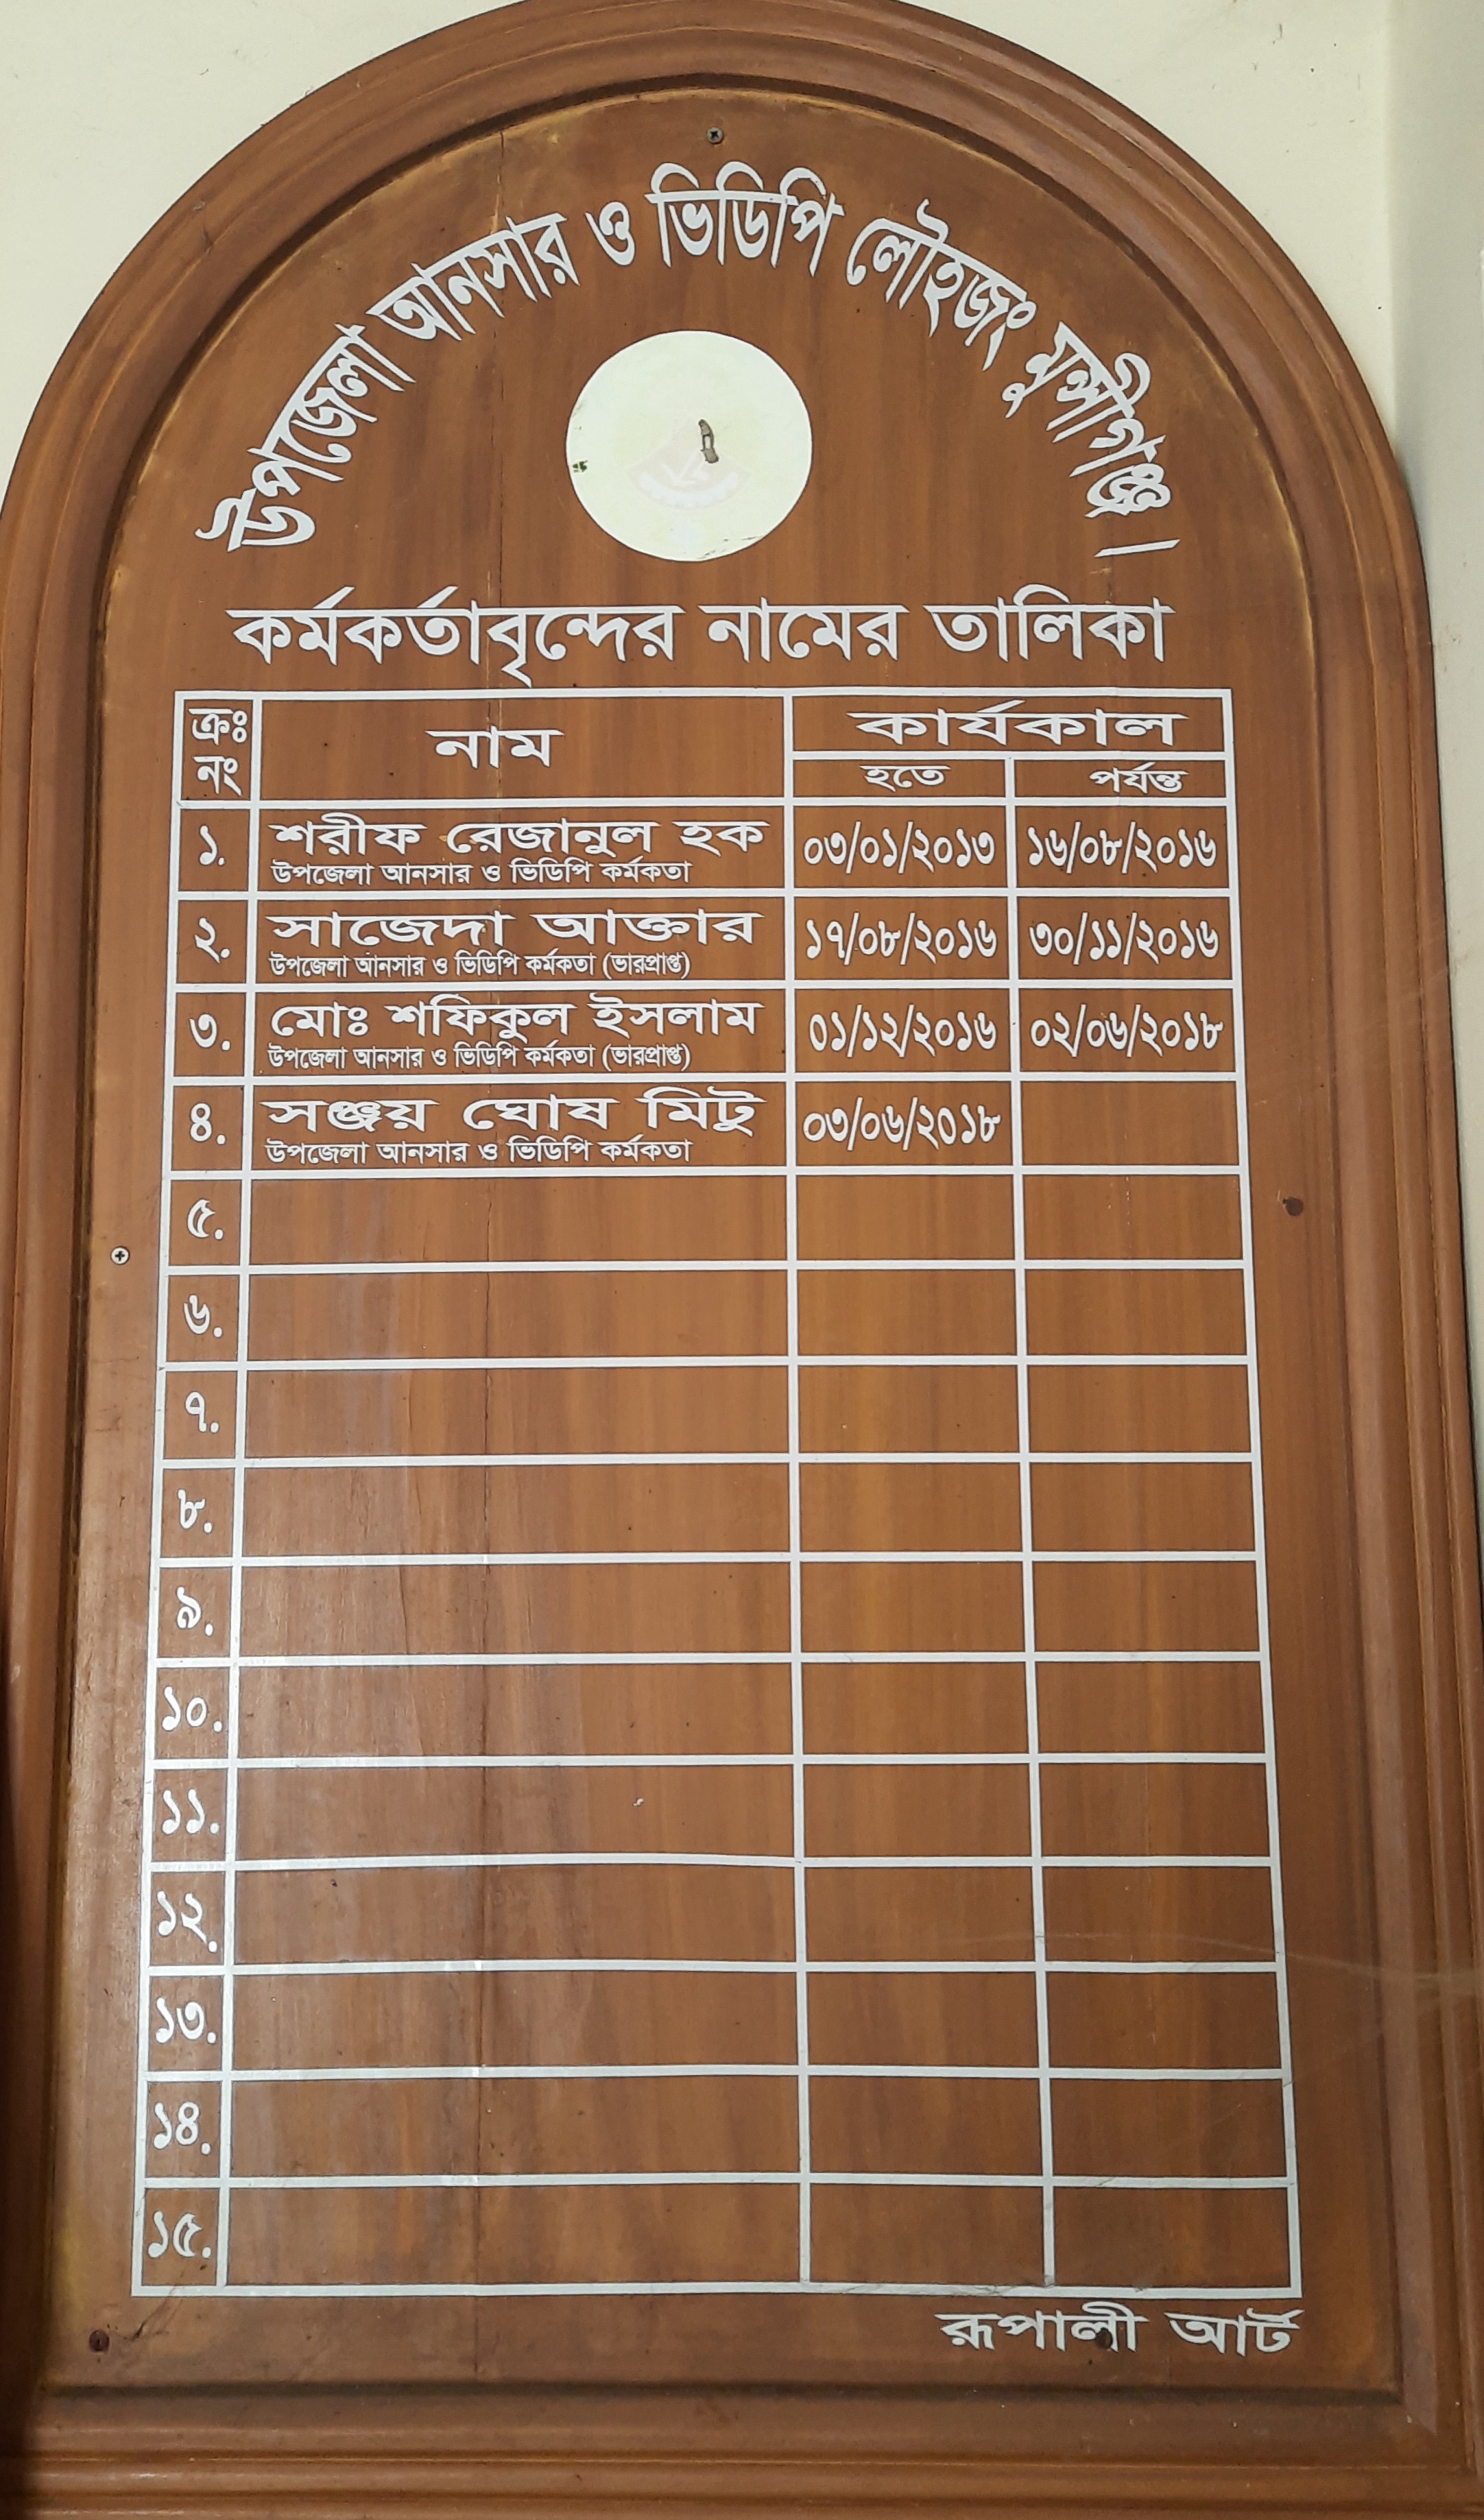 উপজেলা আনসার ও ভিডিপি লৌহজং মুন্সীগঞ্জ।
কর্মকর্তাবৃন্দের নামের তালিকা
ক্রঃ নং নাম কার্যকাল
হতে পর্যন্ত
১. শরীফ রেজানুল হক ০৩/০১/২০১৩ ১৬/০৮/২০১৬
উপজেলা আনসার ও ভিডিপি কর্মকতা
২. সাজেদা আক্তার ১৭/০৮/২০১৬ ৩০/১১/২০১৬
উপজেলা আনসার ও ভিডিপি কর্মকতা (ভারপ্রাপ্ত)
৩. মোঃ শফিকুল ইসলাম ০১/১২/২০১৬ ০২/০৬/২০১৮
উপজেলা আনসার ও ভিডিপি কর্মকতা (ভারপ্রাপ্ত)
৪. সঞ্জয় ঘোষ মিটু ০৩/০৬/২০১৮
উপজেলা আনসার ও ভিডিপি কর্মকতা
৫.
৬.
৭.
৮.
৯.
১০.
১১.
১২.
১৩.
১৪.
১৫.
রূপালী আর্ট